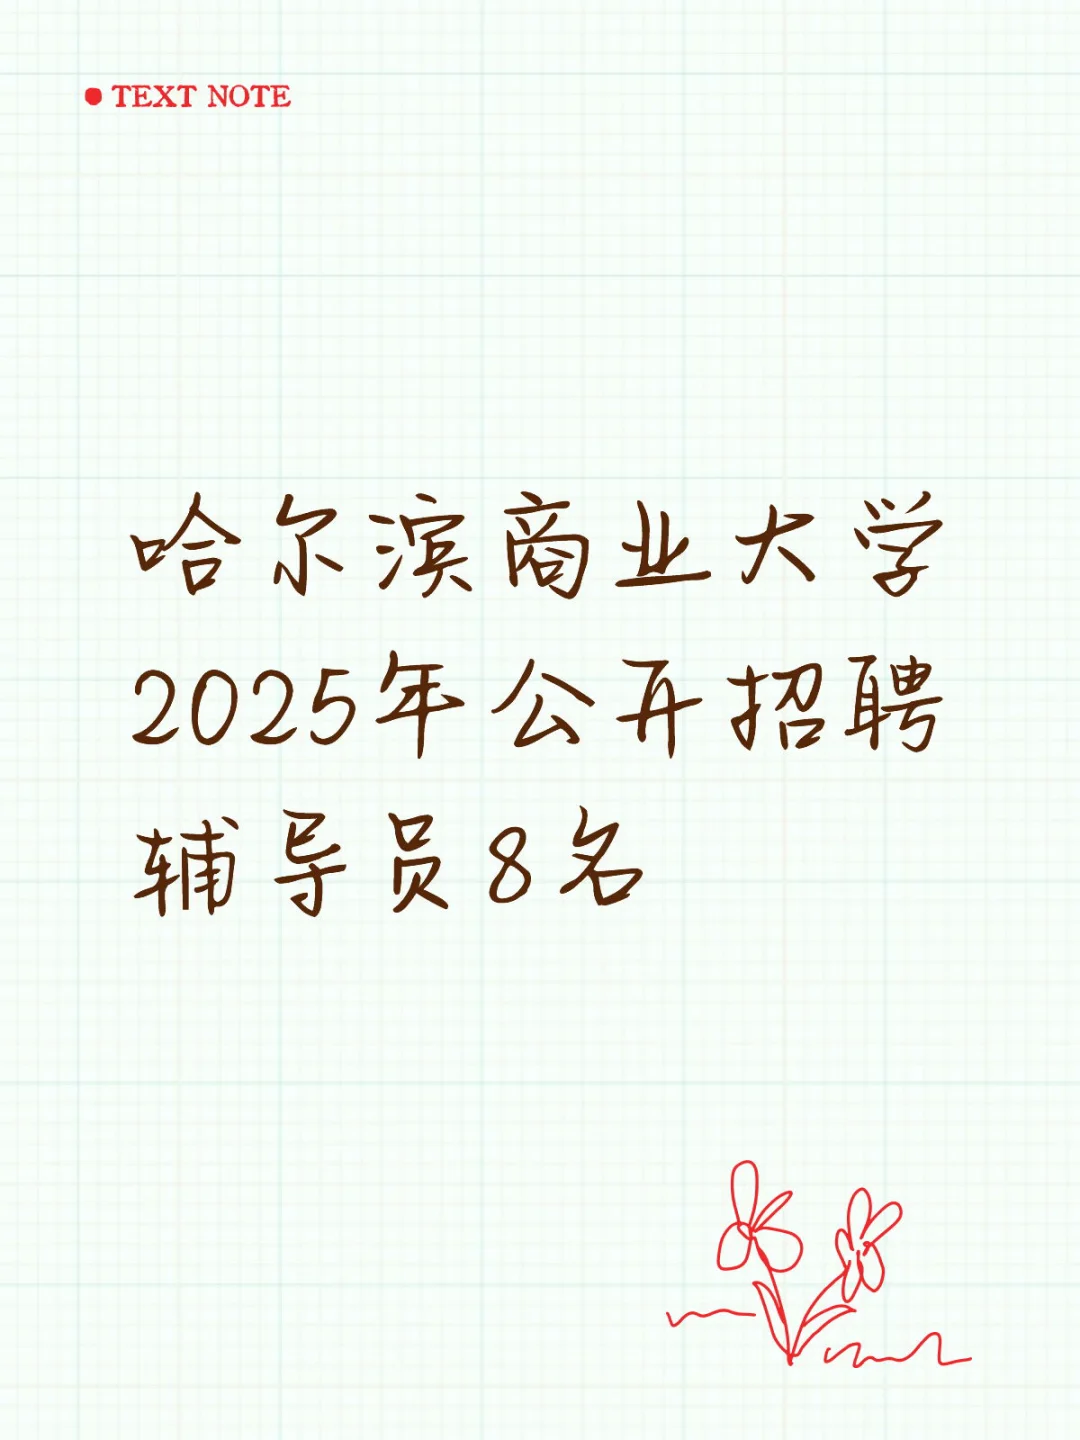 TEXT NOTE
哈尔滨商业大学
2025年公开招聘
辅导员8名